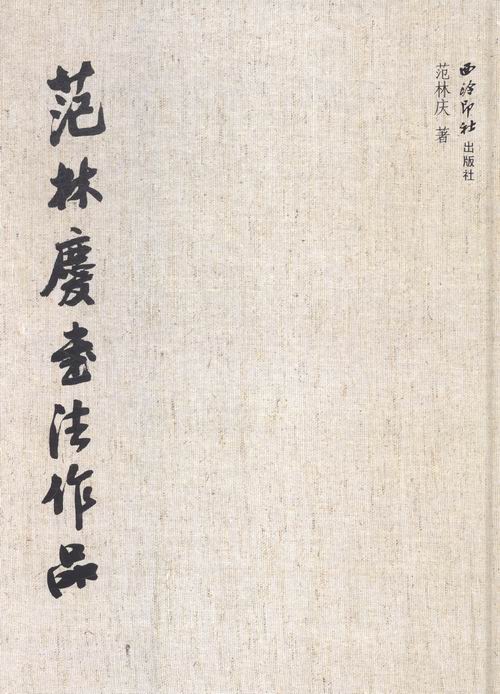 西泠印社出版社
范林庆 著
范林慶書法作品